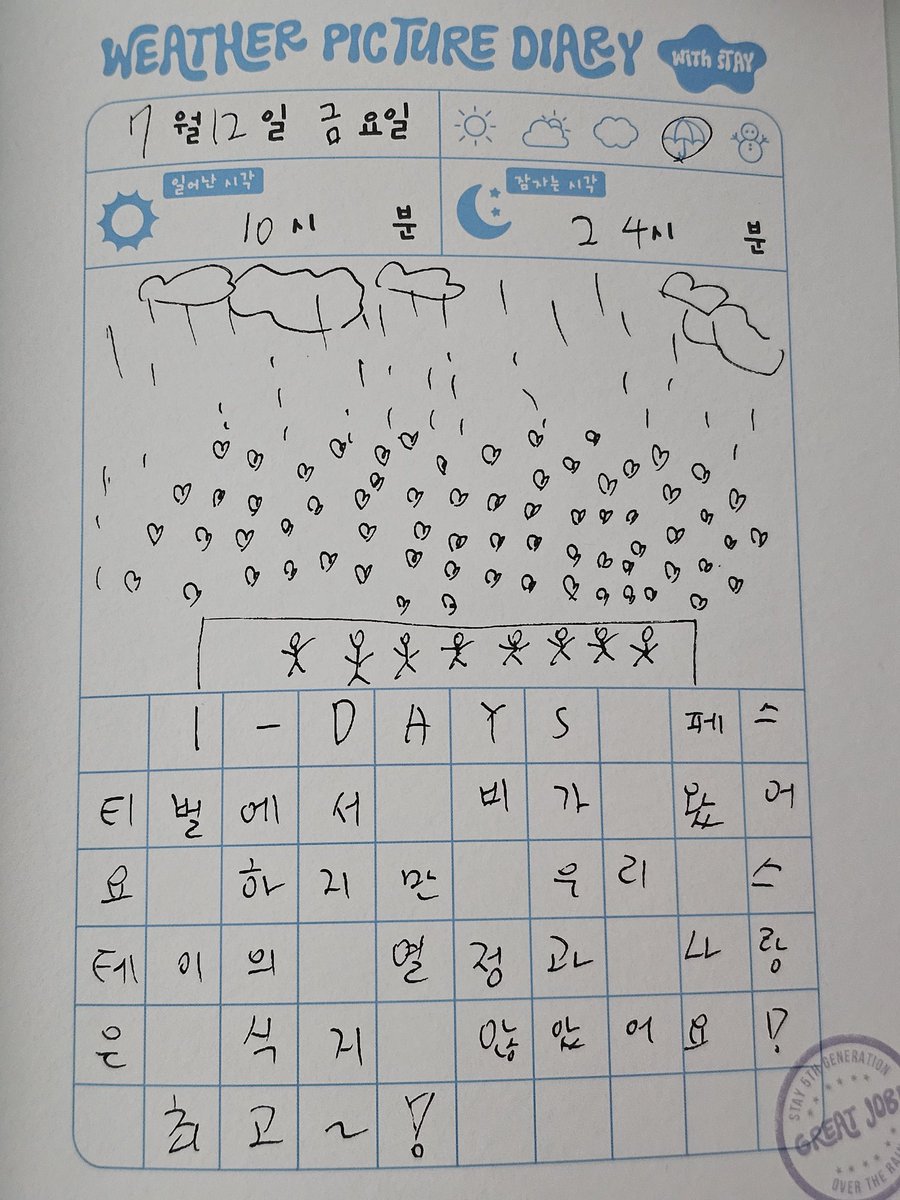 WEATHER PICTURE DIARY WITH STAY
7월 12일 금요일
일어난 시각 잠자는 시각
10시 분 24시 분
I-DAYS 페스
티벌에서 비가 왔어
요 하지만 우리 스
테이의 열정과 사랑
은 식지 않았어요!
최고~!
STAY 5TH GENERATION
GREAT JOB
OVER THE RA